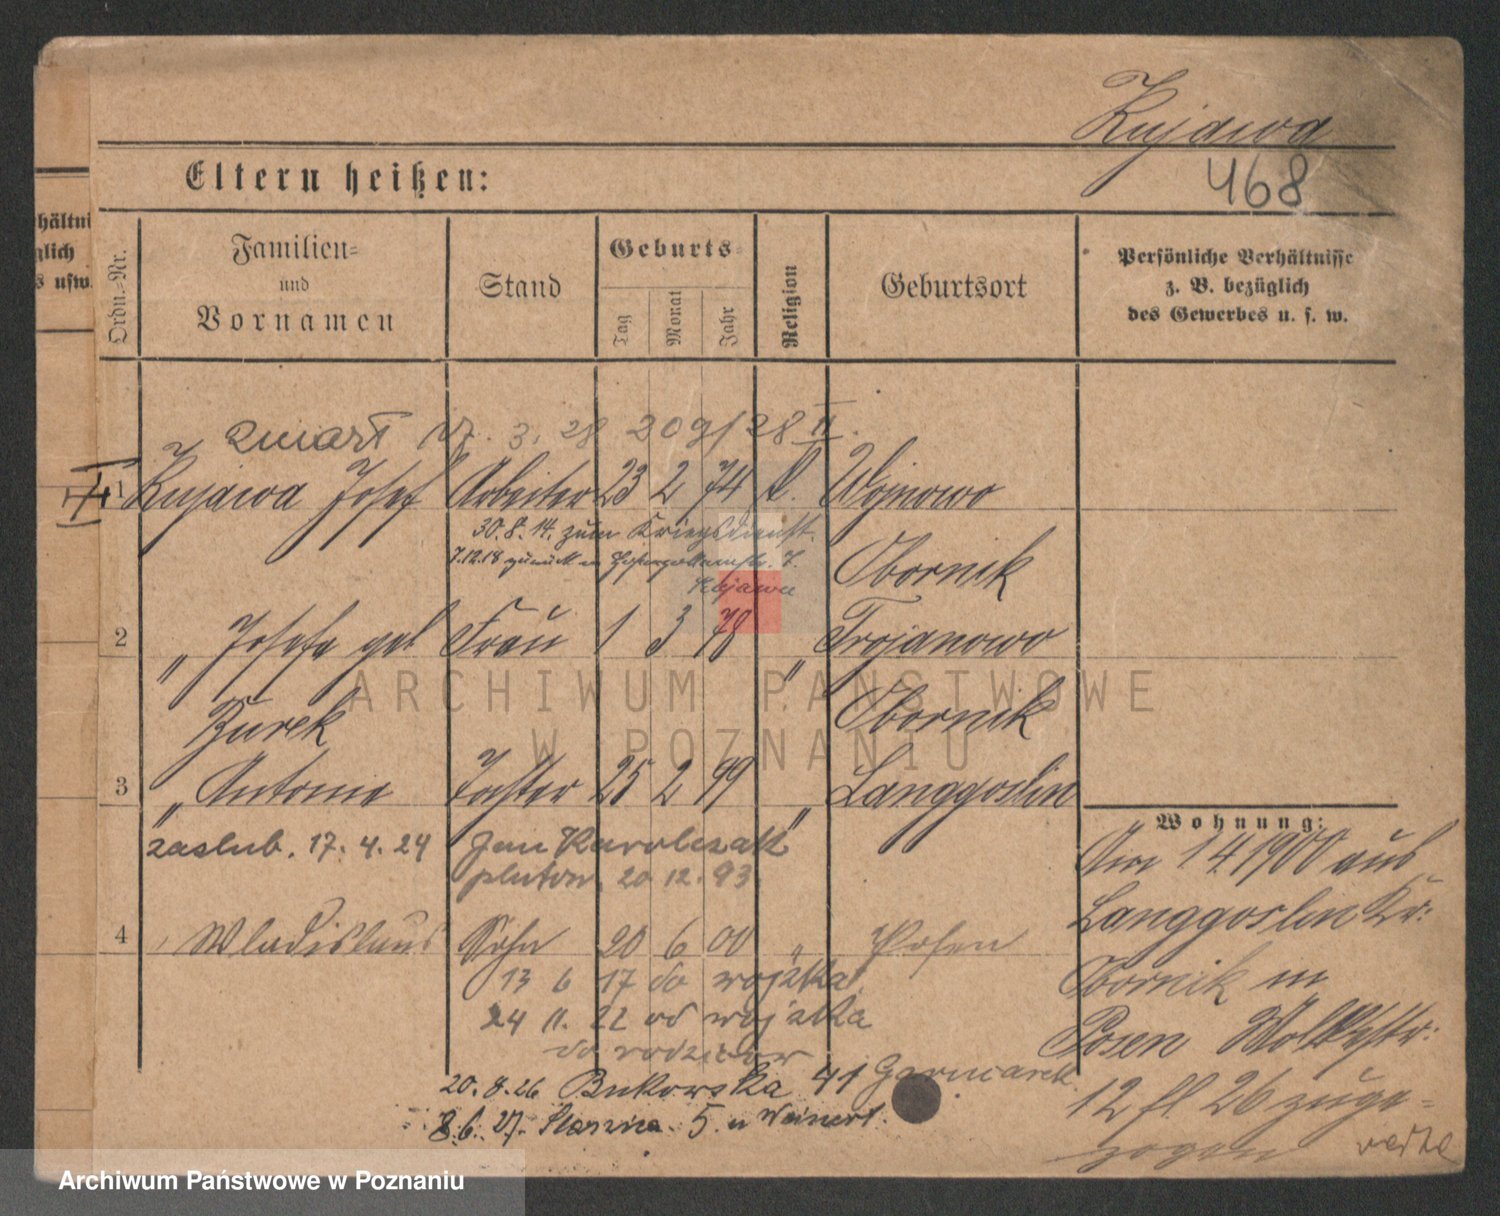 Kujawa
468
Eltern heißen:
hältni
glich
s usw.
Ordn.-Nr.
Familien-
und
Vornamen
Stand
Geburts-
Tag
Monat
Jahr
Religion
Geburtsort
Persönliche Verhältnisse
z. B. bezüglich
des Gewerbes u. s. w.
zmarł 17. 3. 28 209/28 II.
1 Kujawa Josef Arbeiter 23 2 74 k. Wojnowo
30.8.14. zum Kriegsdienst.
7.12.18 zurück
Obornik
Kujawa
2 " Josefa geb Frau 1 3 78 " Trojanowo
Żurek Obornik
ARCHIWUM PAŃSTWOWE
W POZNANIU
3 " Antonie Tochter 25 2 99 " Langgoslin
Wohnung:
zaslub. 17. 4. 24 Jan Karolczak
pluton. 20 12. 93.
Am 1 4 1900 aus
Langgoslin Kr:
4 " Wladislaus Sohn 20 6 00 " Posen
13 6 17 do wojska
Obornik in
24 11. 22 od wojska
Posen
do rodziców
20.8.26 Bukowska 41 Garncarek
12 fl 26 zuge-
8.6. 27. 5. u Weinert.
zogen
verte
Archiwum Państwowe w Poznaniu